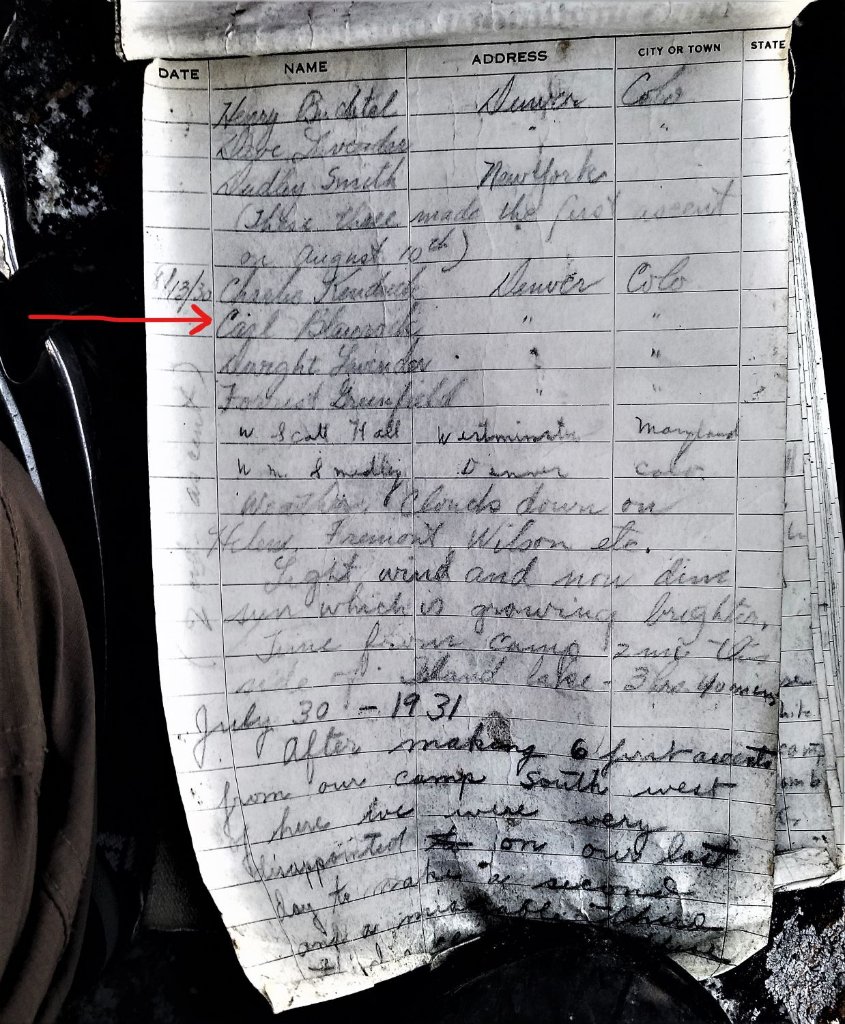 DATE NAME ADDRESS CITY OR TOWN STATE
Henry Denver Colo
Dave Lavender " "
Dudley Smith New York
(These three made the first ascent
on August 10th)
8/13/30 Charlie Kendrick Denver Colo
Carl Blaurock " "
Dwight Lavender " "
Forrest Greenfield " "
W Scott Hall Westminster Maryland
Wm. Smedley Denver Colo
Weather. Clouds down on
Helen, Fremont Wilson etc.
Light wind and now dim
sun which is growing brighter.
Time from camp 2 mi this
side of Island lake - 3 hrs 40 mins
(2nd ascent)
July 30 - 1931
After making 6 first ascents
from our camp South west
of here we were very
disappointed on our last
day to make a second
and a miserable third